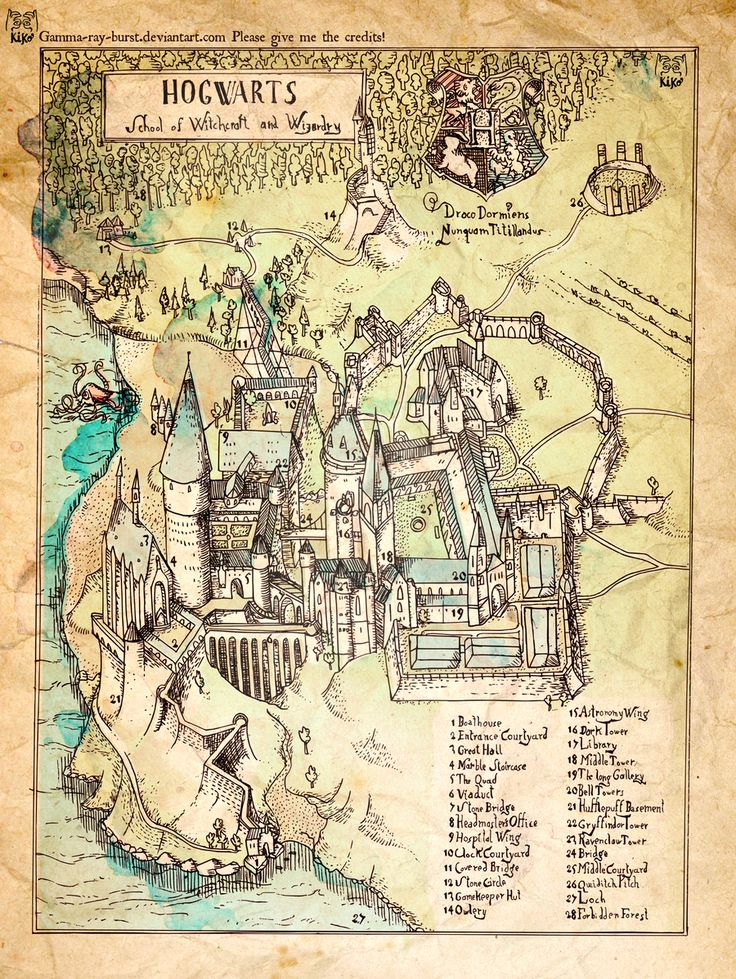 KiKo Gamma-ray-burst.deviantart.com Please give me the credits!
KiKo
HOGWARTS
School of Witchcraft and Wizardry
H
Draco Dormiens
Nunquam Titillandus
28
14
26
12
13
11
10
17
8
9
15
22
25
24
3
16
18
4
5
20
23
19
2
21
27
1 Boathouse
2 Entrance Courtyard
3 Great Hall
4 Marble Staircase
5 The Quad
6 Viaduct
7 Stone Bridge
8 Headmasters Office
9 Hospital Wing
10 Clock Courtyard
11 Covered Bridge
12 Stone Circle
13 Gamekeeper Hut
14 Owlery
15 Astronomy Wing
16 Dark Tower
17 Library
18 Middle Tower
19 The long Gallery
20 Bell Towers
21 Hufflepuff Basement
22 Gryffindor Tower
23 Ravenclaw Tower
24 Bridge
25 Middle Courtyard
26 Quiditch Pitch
27 Loch
28 Forbidden Forest